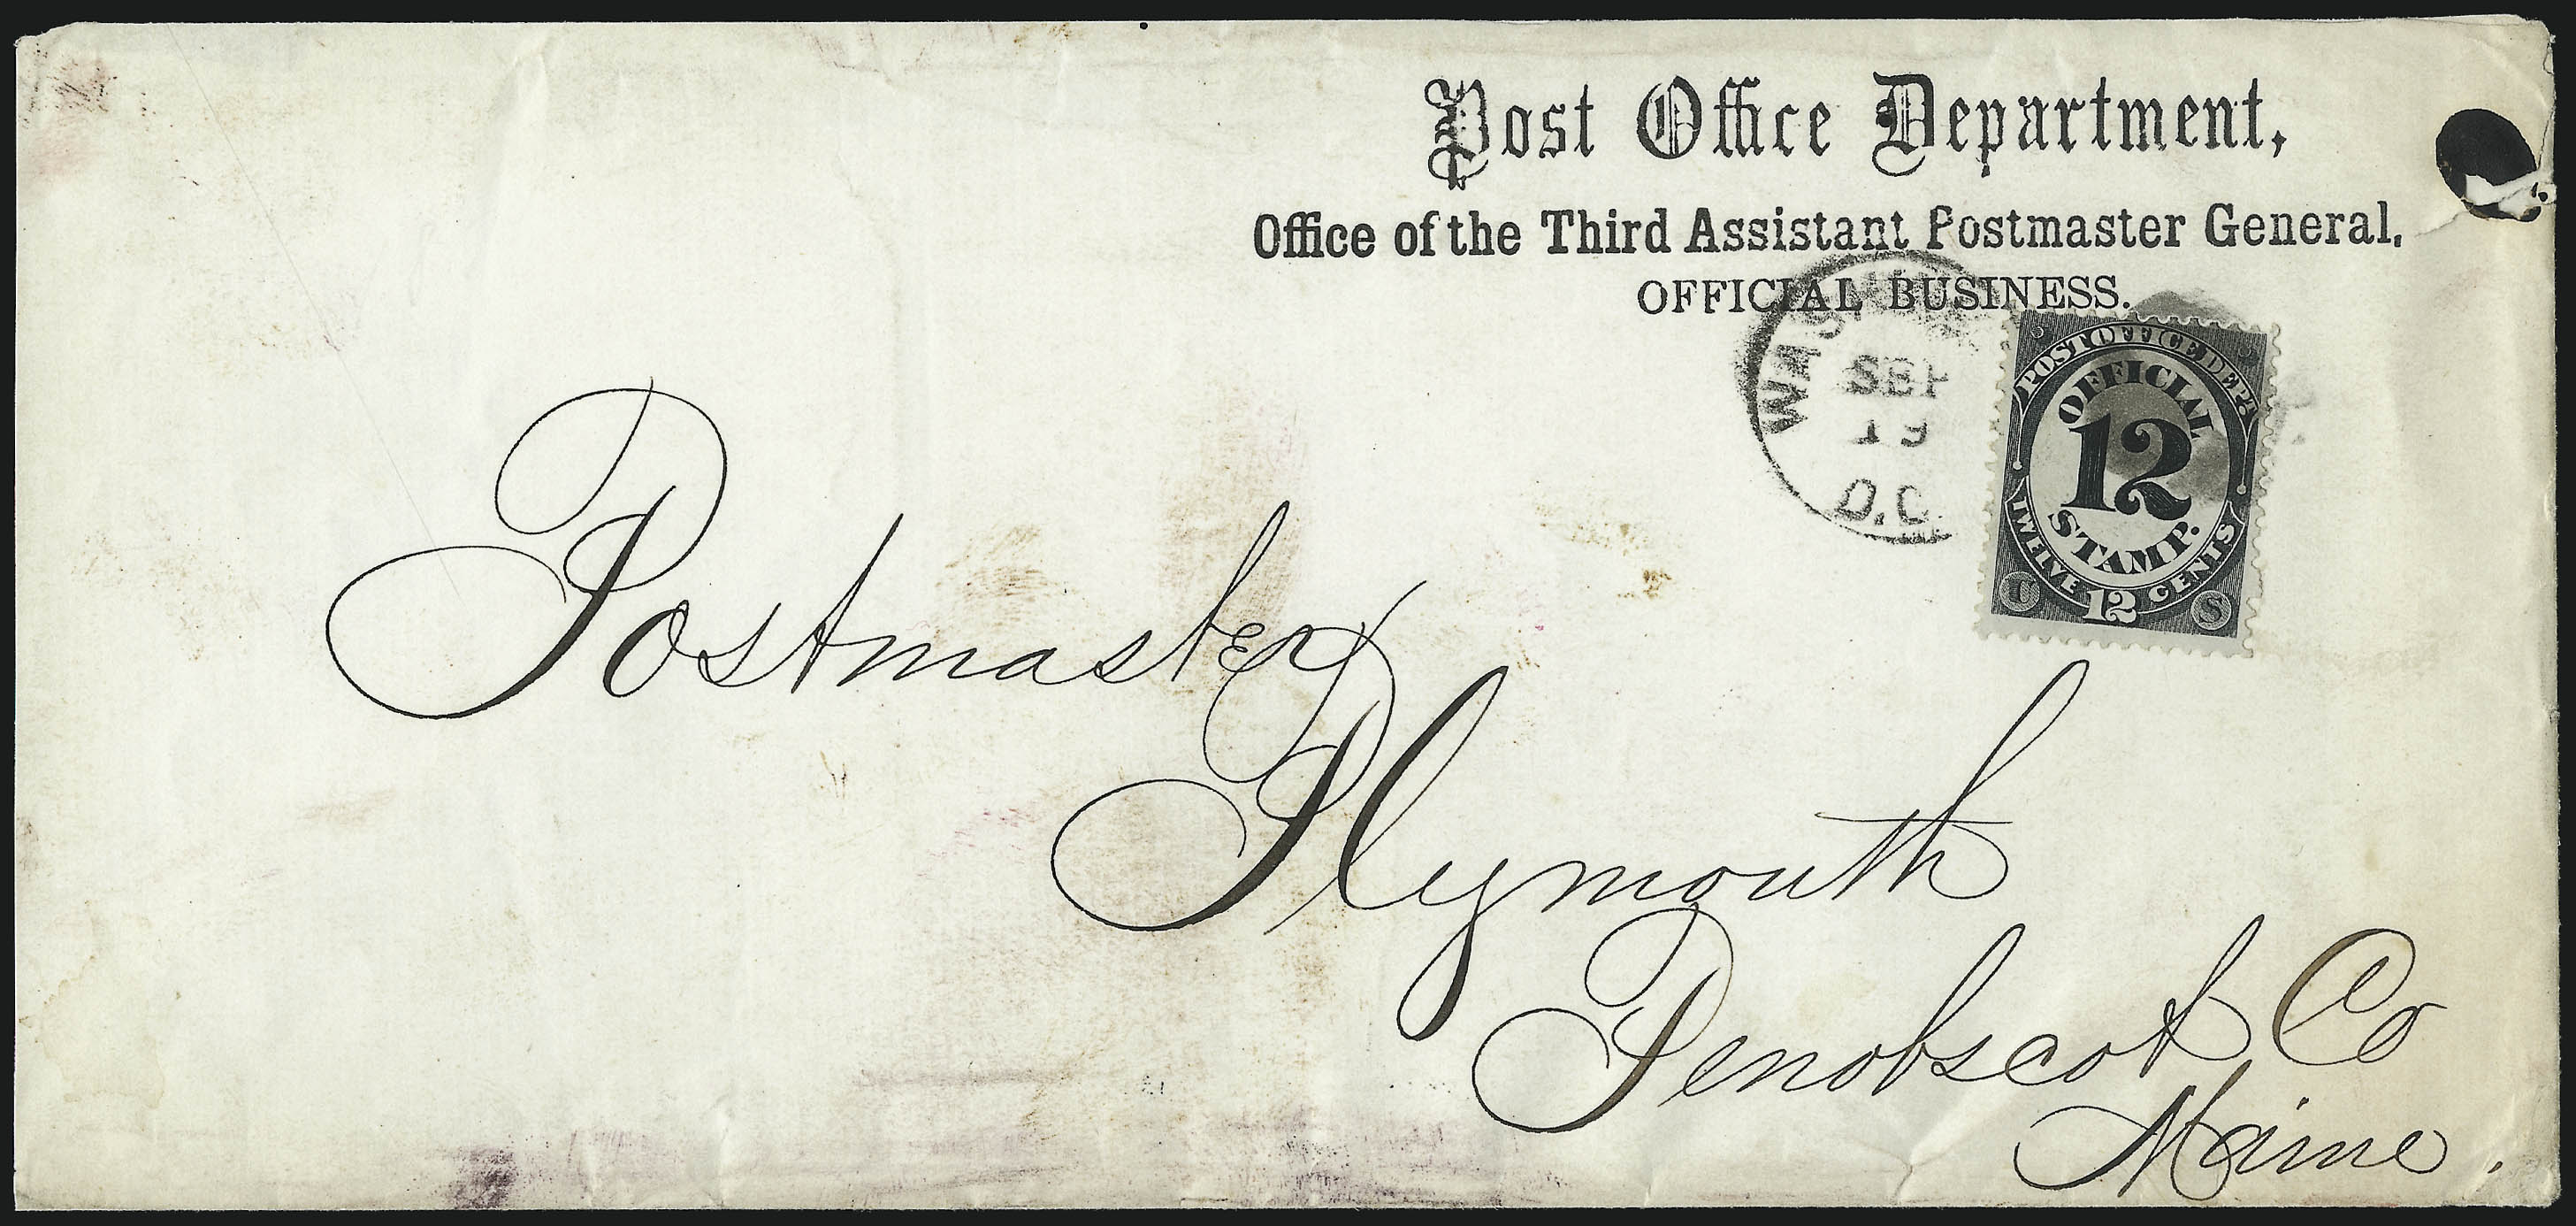 Post Office Department,
Office of the Third Assistant Postmaster General.
OFFICIAL BUSINESS.
SEP
19
D.C.
POST OFFICE DEPT.
OFFICIAL
12
STAMP.
TWELVE 12 CENTS
U S
Postmaster
Plymouth
Penobscot Co
Maine.